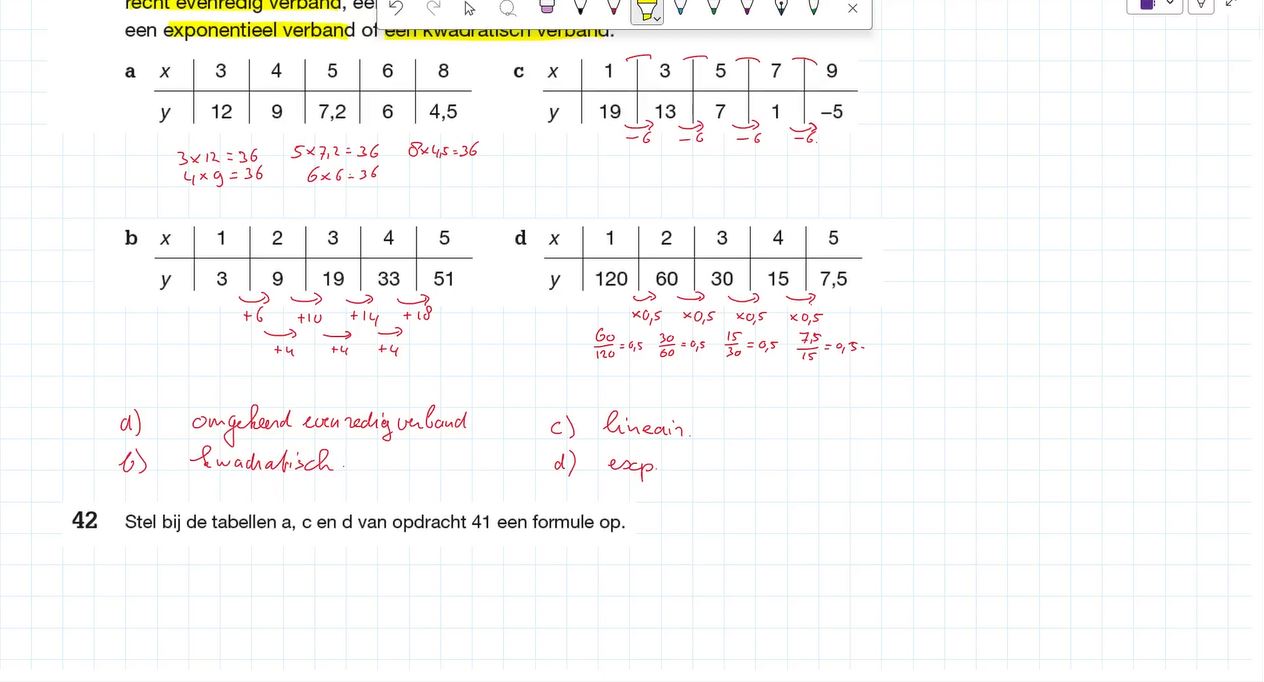 recht evenredig verband, ee
een exponentieel verband of een kwadratisch verband.
a x 3 4 5 6 8
y 12 9 7,2 6 4,5
3×12=36 5×7,2=36 8×4,5=36
4×9=36 6×6=36
c x 1 3 5 7 9
y 19 13 7 1 –5
-6 -6 -6 -6.
b x 1 2 3 4 5
y 3 9 19 33 51
+6 +10 +14 +18
+4 +4 +4
d x 1 2 3 4 5
y 120 60 30 15 7,5
×0,5 ×0,5 ×0,5 ×0,5
60/120=0,5 30/60=0,5 15/30=0,5 7,5/15=0,5.
a) omgekeerd evenredig verband
b) kwadratisch.
c) lineair.
d) exp.
42 Stel bij de tabellen a, c en d van opdracht 41 een formule op.